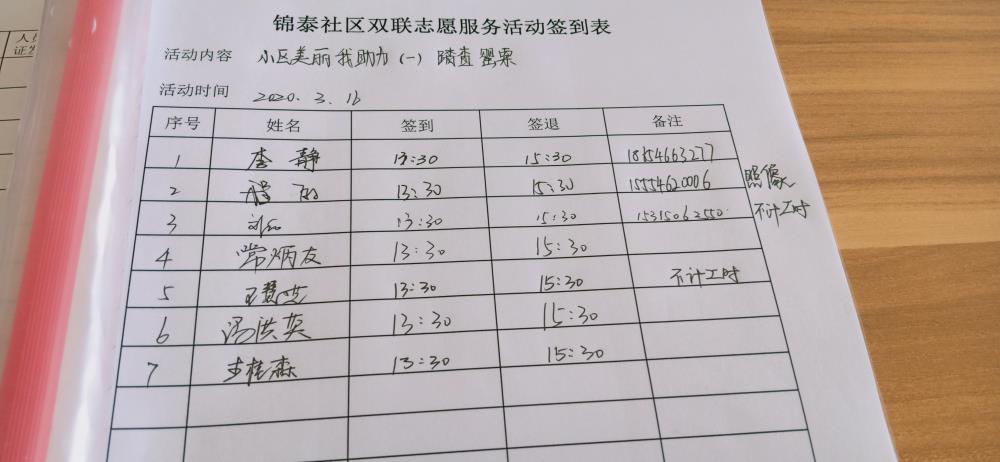 人
证发
锦泰社区双联志愿服务活动签到表
活动内容 小区美丽我助力（一）踏查罂粟
活动时间 2020.3.16
序号 姓名 签到 签退 备注
1 李静 13:30 15:30 18754663277
2 13:30 15:30 15554620006 照像
3 13:30 15:30 15315062550 不计工时
4 常炳友 13:30 15:30
5 王慧 13:30 15:30 不计工时
6 冯洪英 13:30 15:30
7 李桂森 13:30 15:30